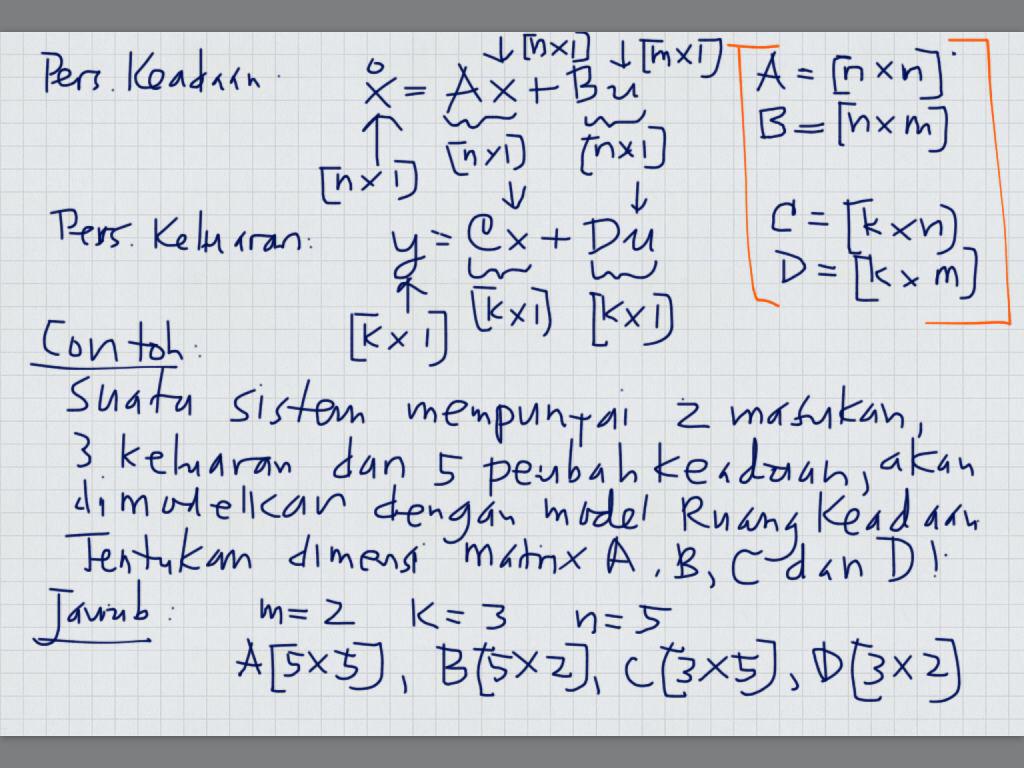 Pers. Keadaan: ẋ = Ax + Bu
↓[n×1] ↓[m×1]
[n×1] [n×1] [n×1]
Pers. Keluaran: y = Cx + Du
[k×1] [k×1] [k×1]
A = [n×n]
B = [n×m]
C = [k×n]
D = [k×m]
Contoh:
Suatu sistem mempunyai 2 masukan,
3 keluaran dan 5 peubah keadaan, akan
dimodelkan dengan model Ruang Keadaan
Tentukan dimensi matrix A, B, C dan D!
Jawab: m=2 k=3 n=5
A[5×5], B[5×2], C[3×5], D[3×2]